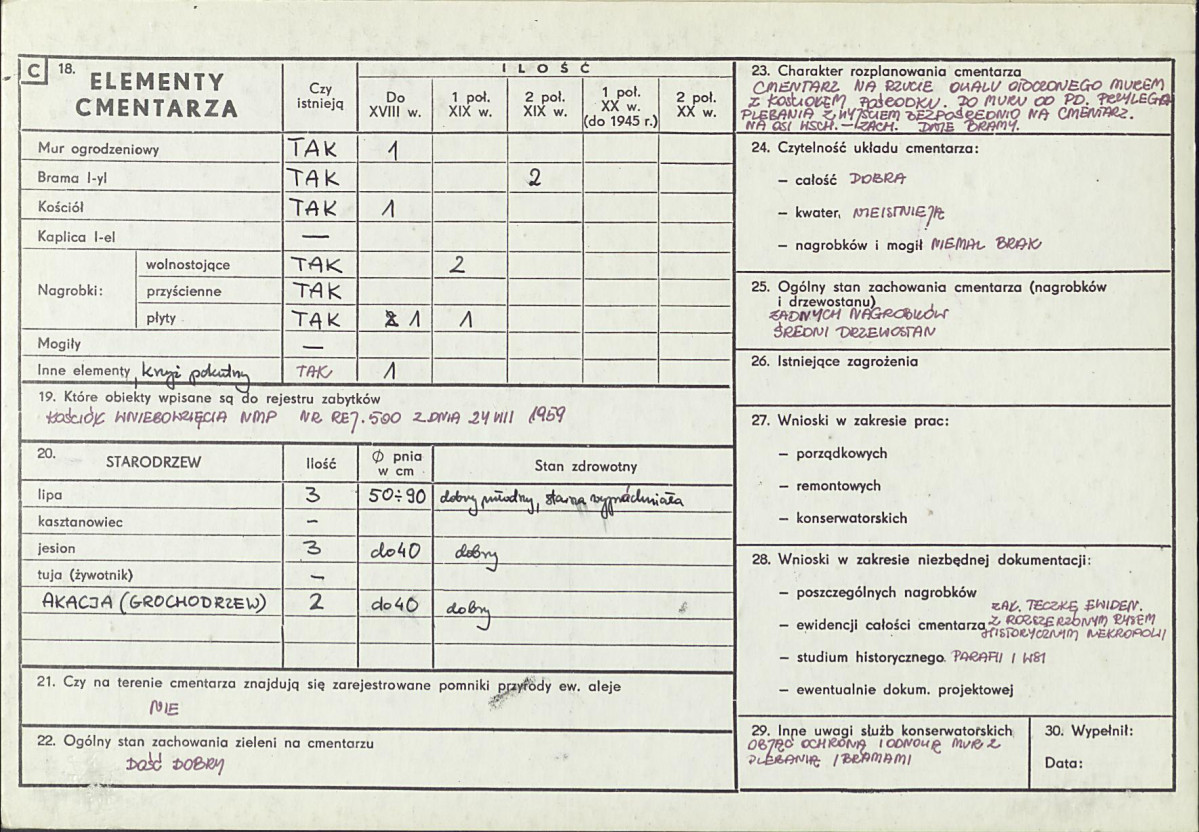 C 18. ELEMENTY CMENTARZA
Czy istnieją
ILOŚĆ
Do XVIII w.
1 poł. XIX w.
2 poł. XIX w.
1 poł. XX w. (do 1945 r.)
2 poł. XX w.
Mur ogrodzeniowy TAK 1
Brama I-yl TAK 2
Kościół TAK 1
Kaplica I-el —
Nagrobki:
wolnostojące TAK 2
przyścienne TAK
płyty TAK 1 1
Mogiły —
Inne elementy, krzyż pokutny TAK 1
19. Które obiekty wpisane są do rejestru zabytków
KOŚCIÓŁ WNIEBOWZIĘCIA NMP NR REJ. 500 Z DNIA 24 VIII 1959
20. STARODRZEW Ilość Ø pnia w cm Stan zdrowotny
lipa 3 50÷90 dobry młodny, starsza wypróchniała
kasztanowiec –
jesion 3 do 40 dobry
tuja (żywotnik) –
AKACJA (GROCHODRZEW) 2 do 40 dobry
21. Czy na terenie cmentarza znajdują się zarejestrowane pomniki przyrody ew. aleje
NIE
22. Ogólny stan zachowania zieleni na cmentarzu
DOŚĆ DOBRY
23. Charakter rozplanowania cmentarza
CMENTARZ NA RZUCIE OWALU OTOCZONEGO MUREM
Z KOŚCIOŁEM POŚRODKU. DO MURU OD PD. PRZYLEGA
PLEBANIA Z WYJŚCIEM BEZPOŚREDNIO NA CMENTARZ.
NA OSI WSCH.–ZACH. DWIE BRAMY.
24. Czytelność układu cmentarza:
– całość DOBRA
– kwater, NIEISTNIEJĄ
– nagrobków i mogił NIEMAL BRAK
25. Ogólny stan zachowania cmentarza (nagrobków
i drzewostanu)
ŻADNYCH NAGROBKÓW
ŚREDNI DRZEWOSTAN
26. Istniejące zagrożenia
27. Wnioski w zakresie prac:
– porządkowych
– remontowych
– konserwatorskich
28. Wnioski w zakresie niezbędnej dokumentacji:
– poszczególnych nagrobków
ZAŁ. TECZKĘ EWIDEN.
– ewidencji całości cmentarza Z ROZSZERZONYM RYSEM
HISTORYCZNYM NEKROPOLII
– studium historycznego PARAFII I WSI
– ewentualnie dokum. projektowej
29. Inne uwagi służb konserwatorskich
OBJĄĆ OCHRONĄ I ODNOWĄ MUR Z
PLEBANIĄ I BRAMAMI
30. Wypełnił:
Data: